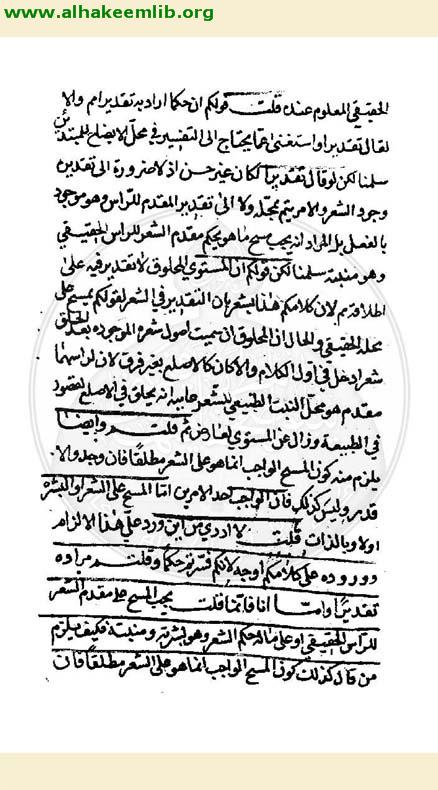 www.alhakeemlib.org
الحقيقي المعلوم عنده قلت قولكم ان حكما اراد به تقديرا م والا
لقال تقديرا واستغنى عما يحتاج الى التفسير في محل لا يصلح للمبتدئين
سلمنا لكن لو قال تقديرا لكان غير حسن اذ لا ضرورة الى تقدير
وجود الشعر والامر يتم بمحله ولا الى تقدير المقدم للرأس وهو موجود
بالفعل بل المراد انه يجب مسح ما هو بحكم مقدم الشعر للراس الحقيقي
وهو منبته سلمنا لكن قولكم ان المستوي المخلوق لا تقدير فيه على
اطلاقه م لان كلامكم هذا يشعر بان التقدير في الشعر لقولكم يمسح على
محله الحقيقي والحال ان المحلوق ان سميت اصول شعره الموجودة بعد الحلق
شعرا دخل في اول الكلام والا كان كالاصلع بغير فرق لان لراسهما
مقدم هو محل النبت الطبيعي للشعر غايته انه يحلق في الاصلع لقصور
في الطبيعة وزال عن المستوي لعارض ثم قلت وايضا
يلزم منه كون المسح الواجب انما هو على الشعر مطلقا فان وجد والا
قدر وليس كذلك فان الواجب احد الامرين اما المسح على الشعر او البشرة
اولا وبالذات قلت لا ادري من اين ورد على هذا الالزام
ووروده على كلامكم اوجه لانكم فسرتم حكما وقلتم مراده
تقديرا واما انا فانما قلت يجب المسح على مقدم الشعر
للراس الحقيقي او على ماله حكم الشعر وهو بشرته ومنبته فكيف يلزم
من قال كذلك كون المسح الواجب انما هو على الشعر مطلقا فان